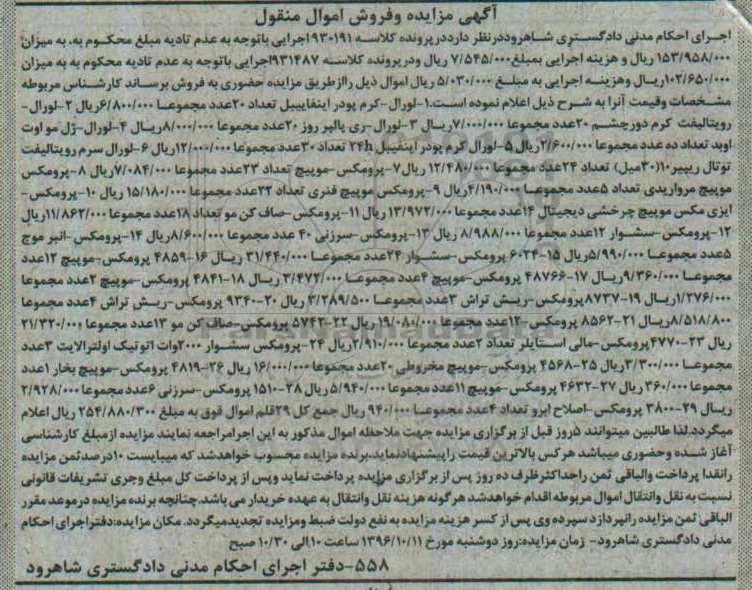 آگهی مزایده وفروش اموال منقول
اجرای احکام مدنی دادگستری شاهروددرنظر دارددرپرونده کلاسه ۹۳۰۱۹۱اجرایی باتوجه به عدم تادیه مبلغ محکوم به، به میزان
۱۵۳/۹۵۸/۰۰۰ ریال و هزینه اجرایی بمبلغ۷/۵۴۵/۰۰۰ ریال ودرپرونده کلاسه ۹۳۱۴۸۷اجرایی باتوجه به عدم تادیه محکوم به به میزان
۱۰۲/۶۵۰/۰۰۰ریال وهزینه اجرایی به مبلغ ۵/۰۳۰/۰۰۰ ریال اموال ذیل راازطریق مزایده حضوری به فروش برساند کارشناس مربوطه
مشخصات وقیمت آنرا به شرح ذیل اعلام نموده است.۱-لورال-کرم پودر اینفایبیل تعداد ۲۰عدد مجموعا ۶/۸۰۰/۰۰۰ریال ۲-لورال-
رویتالیفت کرم دورچشم ۲۰عدد مجموعا ۷/۰۰۰/۰۰۰ریال ۳-لورال-ری پالپر روز ۲۰عدد مجموعا ۸/۰۰۰/۰۰۰ریال ۴-لورال-ژل مو اوت
اوید تعداد ده عدد مجموعا ۲/۶۰۰/۰۰۰ریال ۵-لورال کرم پودر اینفیبل ۲۴h تعداد ۳۰عدد مجموعا ۱۲/۰۰۰/۰۰۰ریال ۶-لورال سرم رویتالیفت
توتال ریپیر۱۰(۳۰میل) تعداد ۲۴عدد مجموعا ۱۲/۴۸۰/۰۰۰ ریال۷-پرومکس-موپیچ تعداد ۲۳عدد مجموعا ۷/۰۸۴/۰۰۰ریال ۸-پرومکس
موپیچ مرواریدی تعداد ۵عدد مجموعا ۴/۱۹۰/۰۰۰ریال ۹-پرومکس موپیچ فنری تعداد ۲۲عدد مجموعا ۱۵/۱۸۰/۰۰۰ ریال ۱۰-پرومکس-
ایزی مکس موپیچ چرخشی دیجیتال ۱۴عدد مجموعا ۱۳/۹۷۲/۰۰۰ ریال ۱۱-پرومکس-صاف کن مو تعداد ۱۸عدد مجموعا ۱۱/۸۶۲/۰۰۰ریال
۱۲-پرومکس-سشوار ۱۲عدد مجموعا ۸/۹۸۸/۰۰۰ ریال ۱۳-پرومکس-سرزنی ۴۰ عدد مجموعا ۸/۶۰۰/۰۰۰ریال ۱۴-پرومکس-انبر موج
۵عدد مجموعا ۵/۹۹۰/۰۰۰ریال ۱۵-۶۰۲۴ پرومکس-سشوار ۲۴عدد مجموعا ۳۱/۴۴۰/۰۰۰ ریال ۱۶-۴۸۵۹ پرومکس-موپیچ ۱۲عدد
مجموعا ۹/۳۶۰/۰۰۰ریال ۱۷-۴۸۷۶۶ پرومکس-موپیچ ۴عدد مجموعا ۳/۴۷۲/۰۰۰ ریال ۱۸-۴۸۴۱ پرومکس-موپیچ ۲عدد مجموعا
۱/۲۷۶/۰۰۰ریال ۱۹-۸۷۳۷پرومکس-ریش تراش ۳عدد مجموعا ۴/۲۸۹/۵۰۰ ریال ۲۰-۹۳۴۰ پرومکس-ریش تراش ۴عدد مجموعا
۸/۵۱۸/۸۰۰ریال ۲۱-۸۵۶۲ پرومکس-۱۲عدد مجموعا ۱۹/۰۸۰/۰۰۰ ریال ۲۲-۵۷۴۲ پرومکس-صاف کن مو ۱۳عدد مجموعا ۲۱/۳۲۰/۰۰۰
ریال ۲۳-۴۷۷۰پرومکس-مالی استایلر تعداد ۲عدد مجموعا ۲/۹۱۰/۰۰۰ریال ۲۴-پرومکس سشوار ۲۰۰۰وات اتوتیک اولترالایت ۳عدد
مجموعا ۳/۳۰۰/۰۰۰ریال ۲۵-۴۵۶۸ پرومکس-موپیچ مخروطی ۲۰عدد مجموعا ۱۶/۰۰۰/۰۰۰ ریال ۲۶-۴۸۱۹ پرومکس-موپیچ بخار ۱عدد
مجموعا ۳۶۰/۰۰۰ ریال ۲۷-۴۶۳۲ پرومکس-موپیچ ۱۱عدد مجموعا ۵/۹۴۰/۰۰۰ریال ۲۸-۱۵۱۰ پرومکس-سرزنی ۶عدد مجموعا ۲/۹۲۸/۰۰۰
ریال ۲۹-۳۸۰۰ پرومکس-اصلاح ابرو تعداد ۴عدد مجموعا ۹۴۰/۰۰۰ ریال جمع کل ۲۹قلم اموال فوق به مبلغ ۲۵۴/۸۸۰/۳۰۰ ریال اعلام
میگردد.لذا طالبین میتوانند ۵روز قبل از برگزاری مزایده جهت ملاحظه اموال مذکور به این اجرامراجعه نمایند مزایده ازمبلغ کارشناسی
آغاز شده وحضوری میباشد هرکس بالاترین قیمت راپیشنهادنماید،برنده مزایده محسوب خواهدشد که میبایست ۱۰درصدثمن مزایده
رانقدا پرداخت والباقی ثمن راحداکثرظرف ده روز پس از برگزاری مزایده پرداخت نماید وپس از پرداخت کل مبلغ وجری تشریفات قانونی
نسبت به نقل وانتقال اموال مربوطه اقدام خواهدشد هرگونه هزینه نقل وانتقال به عهده خریدار می باشد.چنانچه برنده مزایده درموعد مقرر
الباقی ثمن مزایده رانپردازد سپرده وی پس از کسر هزینه مزایده به نفع دولت ضبط ومزایده تجدیدمیگردد. مکان مزایده:دفتراجرای احکام
مدنی دادگستری شاهرود- زمان مزایده:روز دوشنبه مورخ ۱۳۹۶/۱۰/۱۱ ساعت ۱۰الی ۱۰/۳۰ صبح
۵۵۸-دفتر اجرای احکام مدنی دادگستری شاهرود